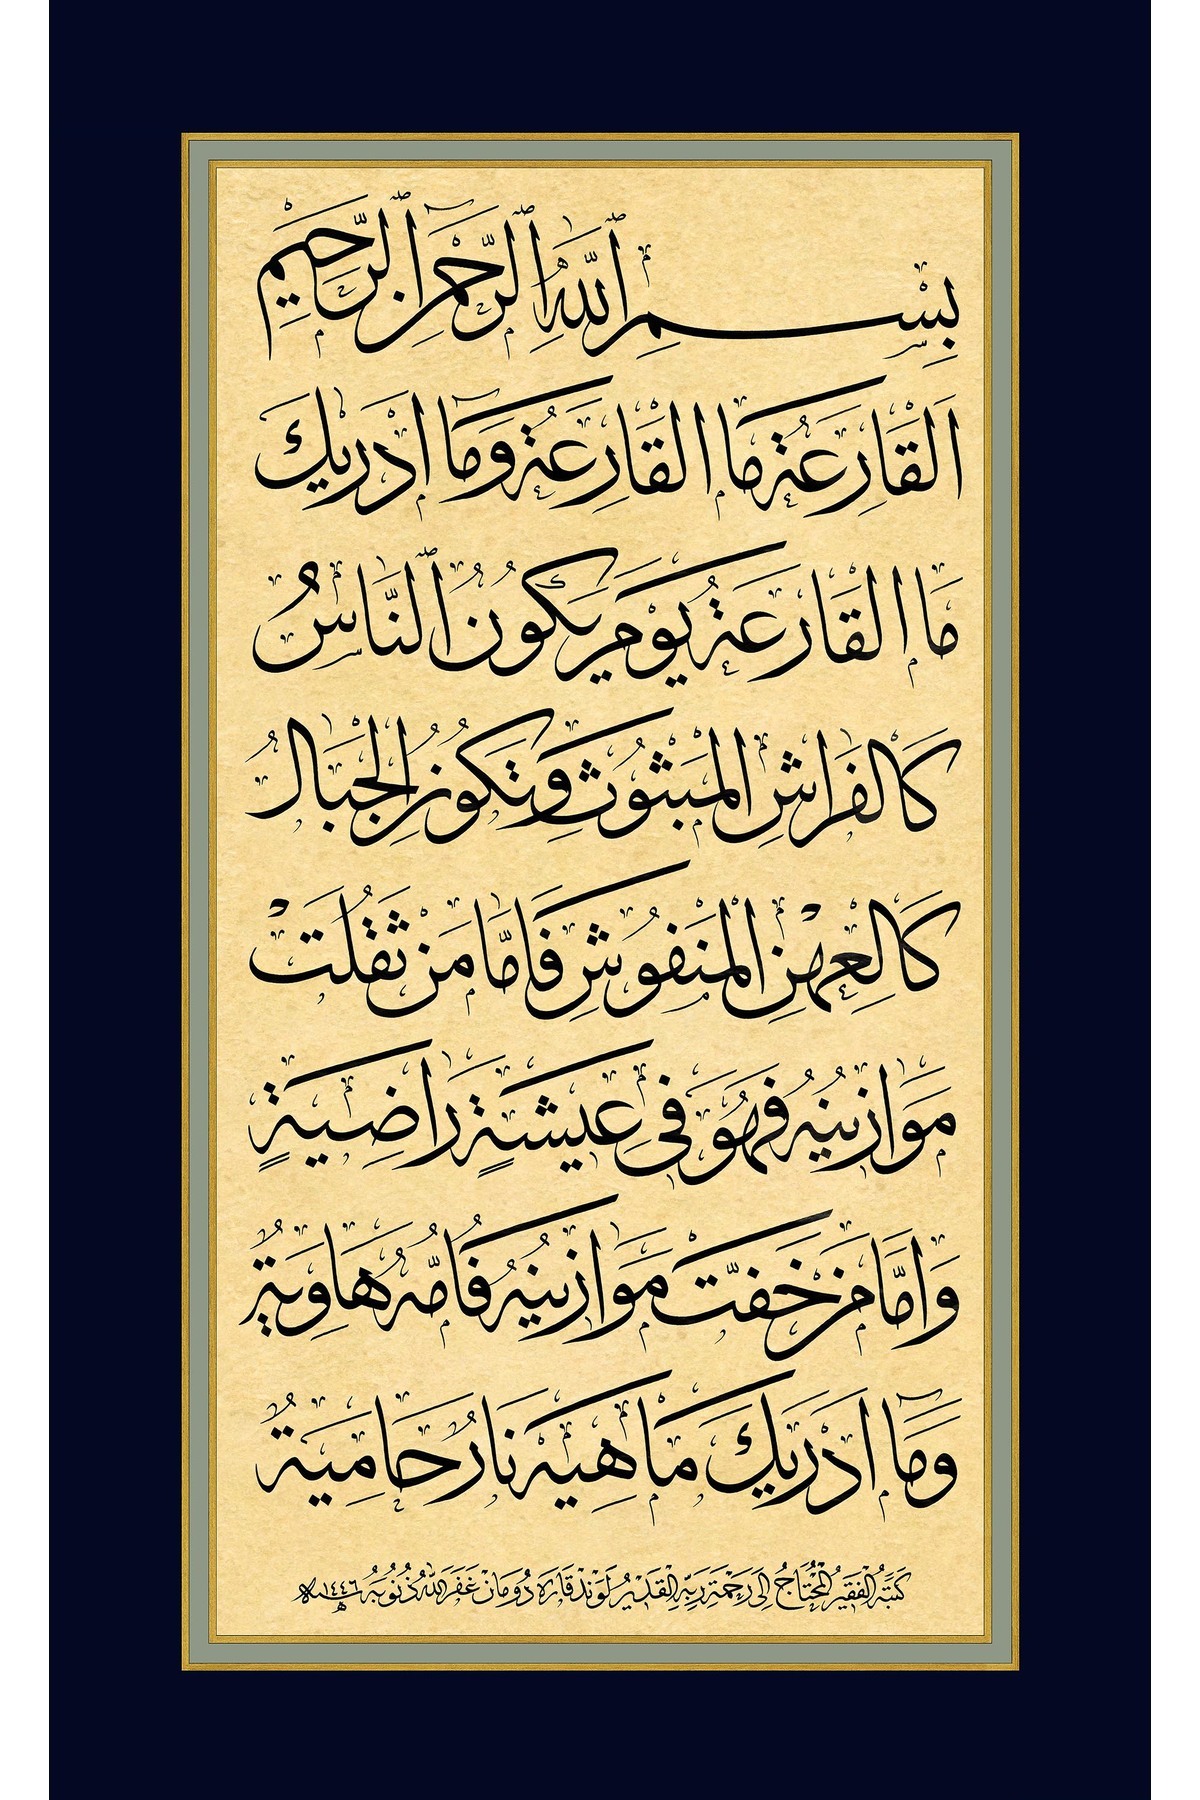 بِسْمِ ٱللّٰهِ ٱلرَّحْمٰنِ ٱلرَّحِيمِ
اَلْقَارِعَةُ مَا الْقَارِعَةُ وَمَٓا اَدْرٰيكَ
مَا الْقَارِعَةُ يَوْمَ يَكُونُ ٱلنَّاسُ
كَالْفَرَاشِ الْمَبْثُوثِ وَتَكُونُ الْجِبَالُ
كَالْعِهْنِ الْمَنْفُوشِ فَاَمَّا مَنْ ثَقُلَتْ
مَوَازِينُهُ فَهُوَ فِى عِيشَةٍ رَاضِيَةٍ
وَاَمَّا مَنْ خَفَّتْ مَوَازِينُهُ فَاُمُّهُ هَاوِيَةٌ
وَمَٓا اَدْرٰيكَ مَا هِيَهْ نَارٌ حَامِيَةٌ
كَتَبَهُ الْفَقِيرُ الْمُحْتَاجُ اِلَى رَحْمَةِ رَبِّهِ الْقَدِيرُ لَوَنْد قَارَه دُومَانْ غَفَرَ اللّٰهُ ذُنُوبَهُ سنة ١٤٤٦